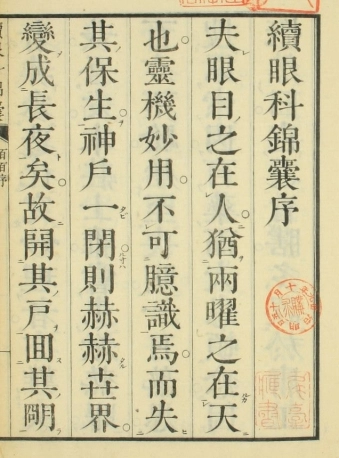 續眼科錦囊序
夫眼目之在人猶兩曜之在天
也靈機妙用不可臆識焉而失
其保生神戶一閉則赫赫世界
變成長夜矣故開其戶回其明